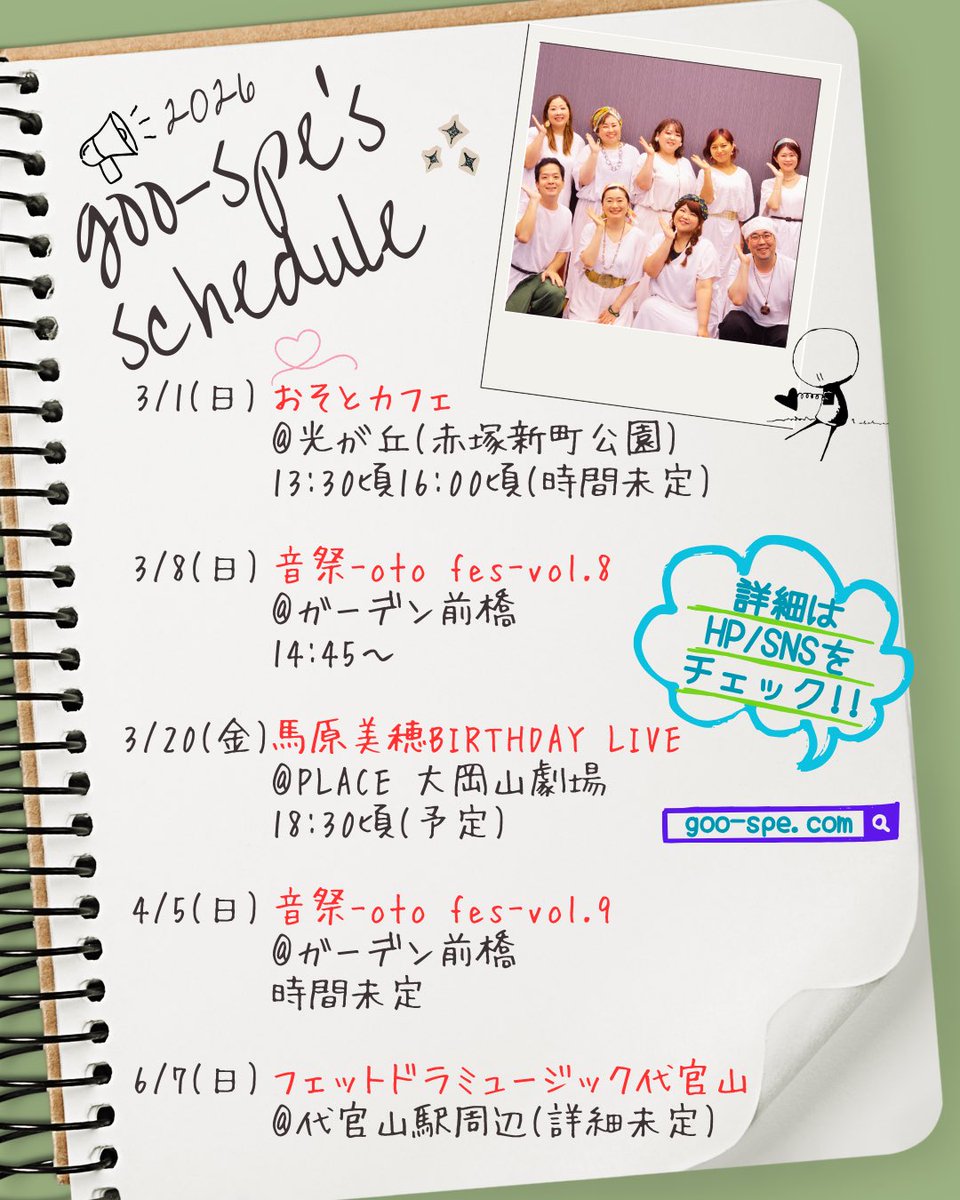 2026
goo-spe's
schedule
3/1(日) おそとカフェ
@光が丘(赤塚新町公園)
13:30頃16:00頃(時間未定)
3/8(日) 音祭-oto fes-vol.8
@ガーデン前橋
14:45～
3/20(金)馬原美穂BIRTHDAY LIVE
@PLACE 大岡山劇場
18:30頃(予定)
4/5(日) 音祭-oto fes-vol.9
@ガーデン前橋
時間未定
6/7(日) フェットドラミュージック代官山
@代官山駅周辺(詳細未定)
詳細は
HP/SNSを
チェック!!
goo-spe.com